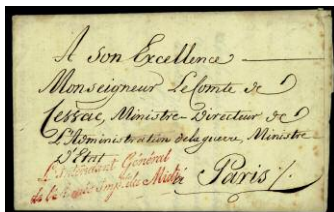 A Son Excellence
Monseigneur Le Comte de
Cessac, Ministre-Directeur de
L'Administration de la guerre, Ministre
D'Etat
L'Intendant Général
de l'Armée Imp.le du Midi
à Paris